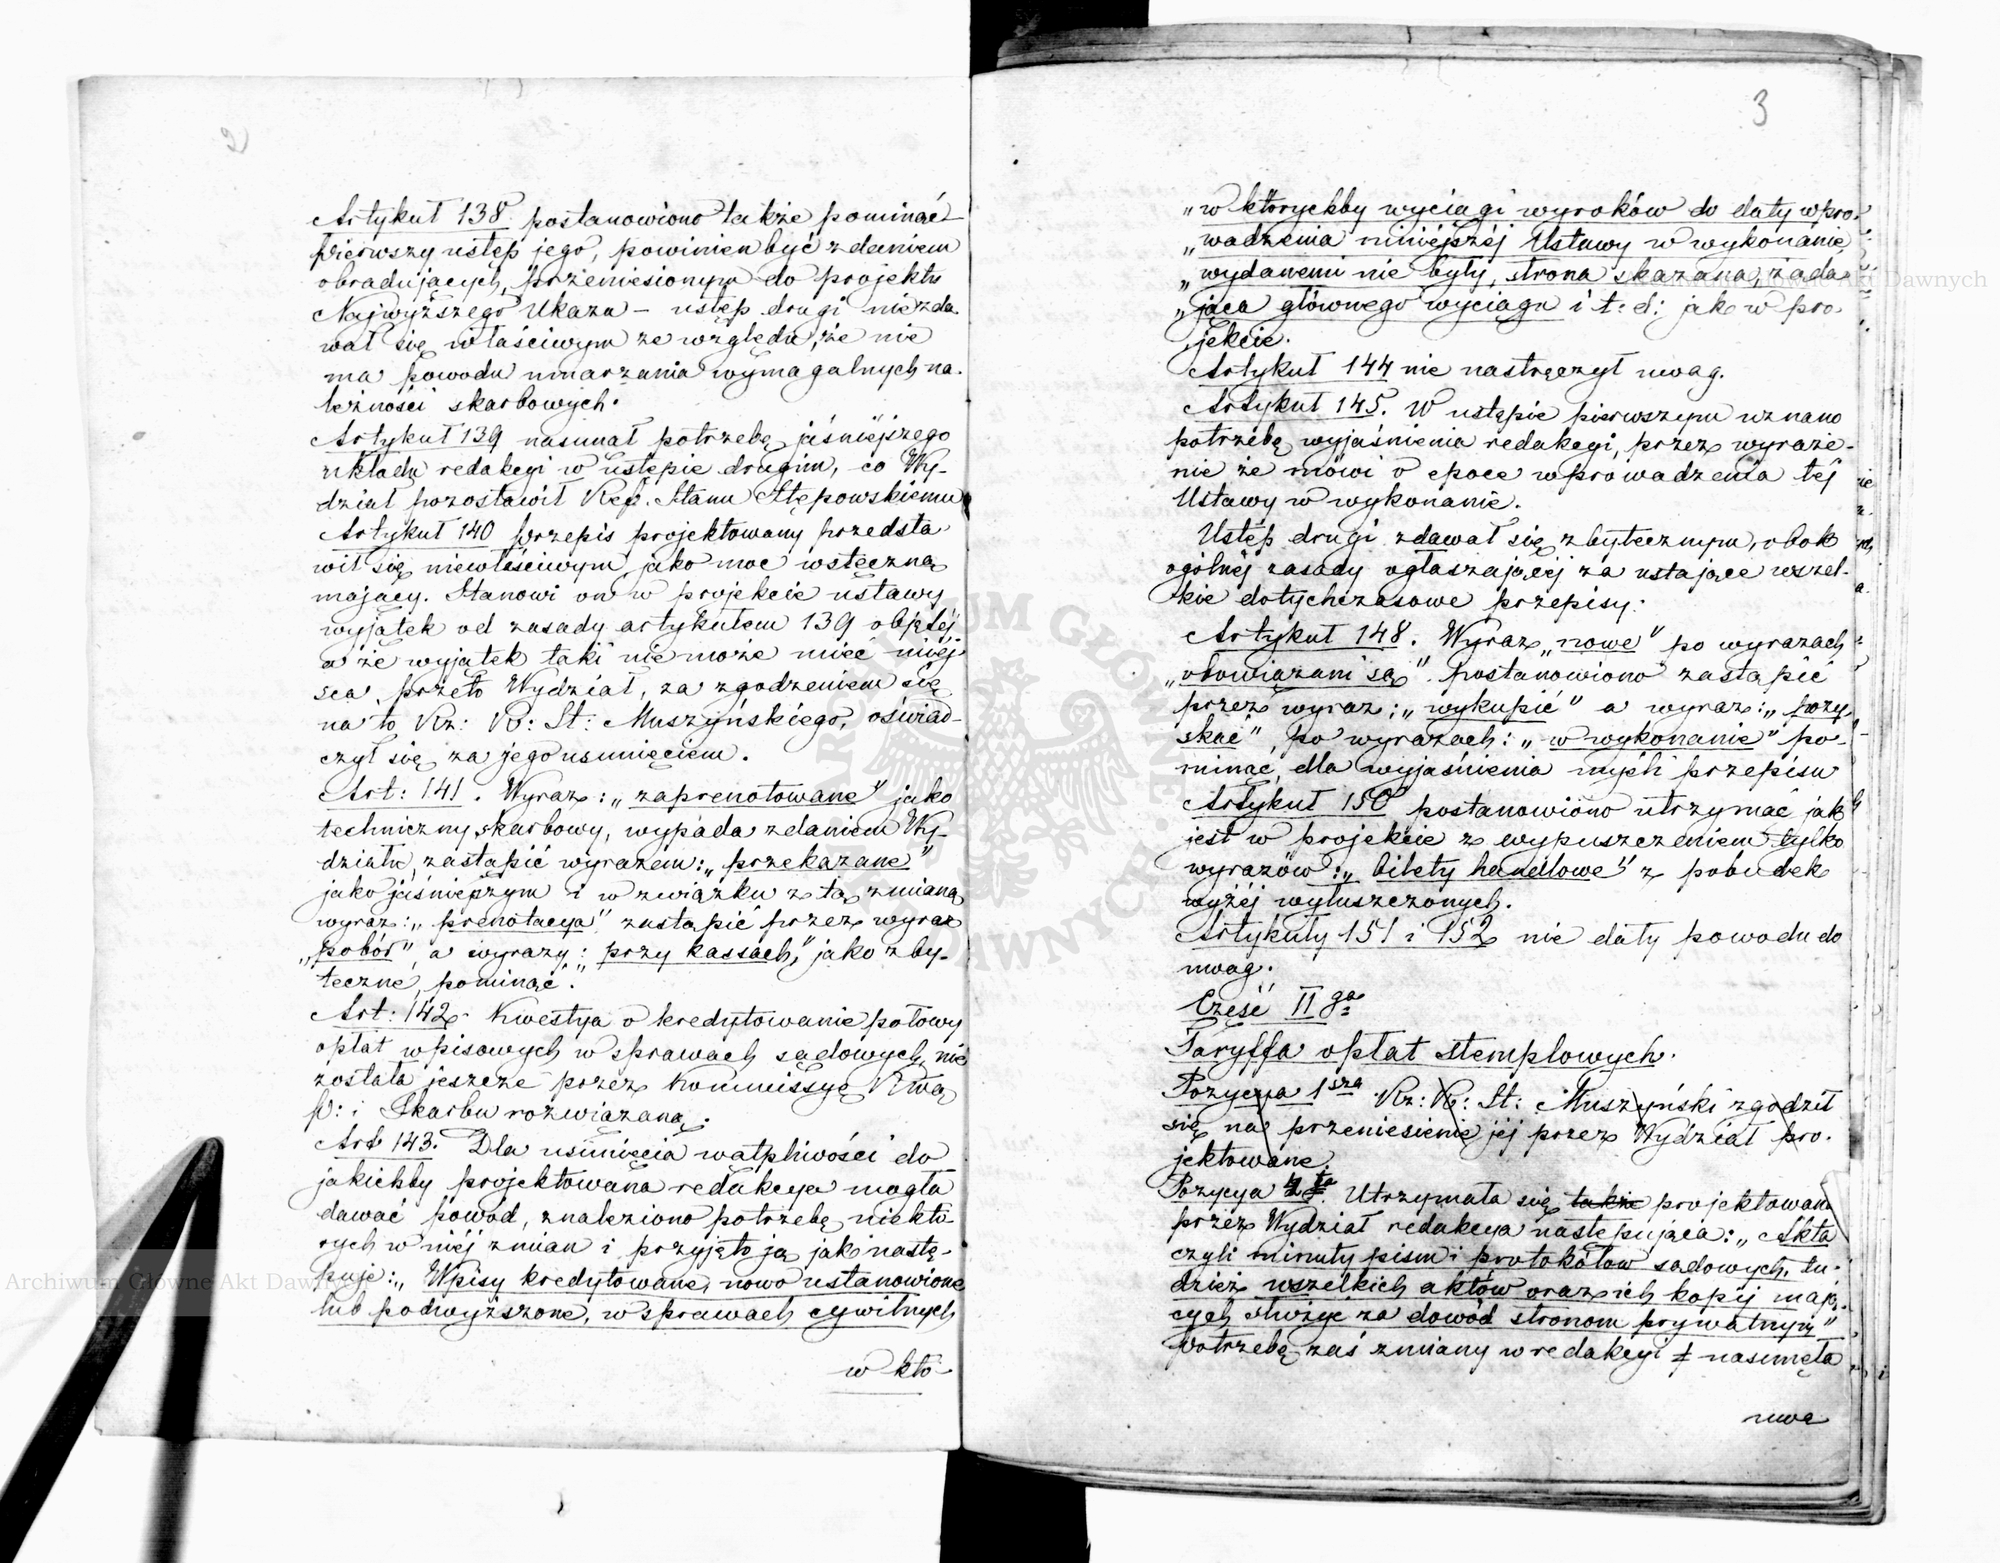 2
Artykuł 138 postanowiono także pominąć
pierwszy ustęp jego, powinien być zdaniem
obradujących, przeniesionym do projektu
Najwyższego Ukazu – ustęp drugi niezda
wał się właściwym ze względu, że nie
ma powodu umarzania wymagalnych na-
leżności skarbowych.
Artykuł 139 nasunął potrzebę jaśniejszego
układu redakcyi w ustępie drugim, co Wy-
dział pozostawił Ref. Stanu Stępowskiemu
Artykuł 140 przepis projektowany przedsta
wił się niewłaściwym jako moc wsteczną
mający. Stanowi on w projekcie ustawy
wyjątek od zasady artykułem 139 objętej
a że wyjątek taki nie może mieć miej-
sca, przeto Wydział, za zgodzeniem się
na to Rz: R: St: Muszyńskiego, oświad-
czył się za jego usunięciem.
Art: 141. Wyraz: „zaprenotowane" jako
techniczny skarbowy, wypada zdaniem Wy-
działu, zastąpić wyrazem: „przekazane"
jako jaśniejszym i w związku z tą zmianą
wyraz: „prenotacya" zastąpić przez wyraz
„pobór", a wyrazy: „przy kassach," jako zby-
teczne, pominąć.
Art: 142. Kwestya o kredytowanie połowy
opłat wpisowych w sprawach sądowych, nie
została jeszcze przez Kommissyę Rwą
P: i Skarbu rozwiązaną.
Art 143. Dla usunięcia wątpliwości do
jakichby projektowana redakcya mogła
dawać powód, znaleziono potrzebę niektó-
rych w niéj zmian i przyjęto ją jak nastę-
puje: „Wpisy kredytowane, nowo ustanowione
lub podwyższone, w sprawach cywilnych
w któ-
3
„w którychby wyciągi wyroków do daty wpro-
„wadzenia niniejszéj Ustawy w wykonanie
„wydanemi nie były, strona skazana, żąda-
„jąca głównego wyciągu i t: d: jak w pro-
jekcie.
Artykuł 144 nie nastręczył uwag.
Artykuł 145. W ustępie pierwszym uznano
potrzebę wyjaśnienia redakcyi, przez wyraże-
nie że mówi o epoce wprowadzenia téj
Ustawy w wykonanie.
Ustęp drugi zdawał się zbytecznym, obok
ogólnéj zasady ogłaszającéj za ustające wszel-
kie dotychczasowe przepisy.
Artykuł 148. Wyraz „nowe" po wyrazach
„obowiązani są" postanowiono zastąpić
przez wyraz: „wykupić" a wyraz: „pozy-
skać", po wyrazach: „w wykonanie" po-
minąć, dla wyjaśnienia myśli przepisu
Artykuł 150 postanowiono utrzymać jak
jest w projekcie z wypuszczeniem tylko
wyrazów: „bilety handlowe" z pobudek
wyżéj wyłuszczonych.
Artykuły 151 i 152 nie dały powodu do
uwag.
Część II ga
Taryffa opłat stemplowych.
Pozycya 1sza Rz: R: St: Muszyński zgodził
się na przeniesienie jéj przez Wydział pro-
jektowane.
Pozycya Utrzymała się także projektowana
przez Wydział redakcya następująca: „Akta
czyli minuty pism i protokółów sądowych, tu-
dzież wszelkich aktów oraz ich kopij mają-
cych służyć za dowód stronom prywatnym"
potrzebę zaś zmiany w redakcyi nasunęła
uwa
ARCHIWUM GŁÓWNE AKT DAWNYCH
Archiwum Główne Akt Dawnych
Archiwum Główne Akt Dawnych